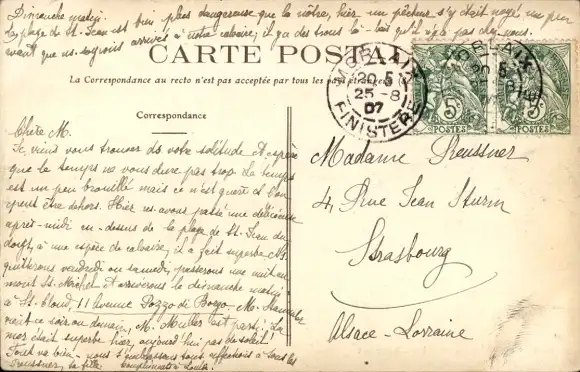 Dimanche matin.
La plage de St. Jean est bien plus dangereuse que la nôtre, hier un pêcheur s'y était noyé un peu
avant que ns. soyons arrivés à notre calvaire, il y a des trous là-bas qu'il n'y a pas chez nous.
CARTE POSTALE
La Correspondance au recto n'est pas acceptée par tous les pays étrangers
Correspondance
MORLAIX
20 5
25-8
07
FINISTERE
5c
POSTES
5c
POSTES
Chère M.
Je viens vous trouver ds votre solitude et espère
que le temps ne vous dure pas trop. Le temps
est un peu brouillé mais ce n'est guère et l'on
peut être dehors. Hier ns. avons passé une délicieuse
après-midi au-dessus de la plage de St. Jean du
doigt, à une espèce de calvaire, il a fait superbe. Ns
quitterons vendredi ou samedi, passerons une nuit au
mont St. Michel et arriverons le dimanche matin
à St. Cloud, 11 Avenue Pozzo di Borgo. M.
vient ce soir ou demain, M. Muller est parti. La
mer était superbe hier, aujourd'hui pas de soleil!
Tout va bien - nous t'embrassons tous, affections à tous les
Preussner, ta fille
Compliments à Louise.
Madame Preussner
4, Rue Jean Sturm
Strasbourg
Alsace-Lorraine